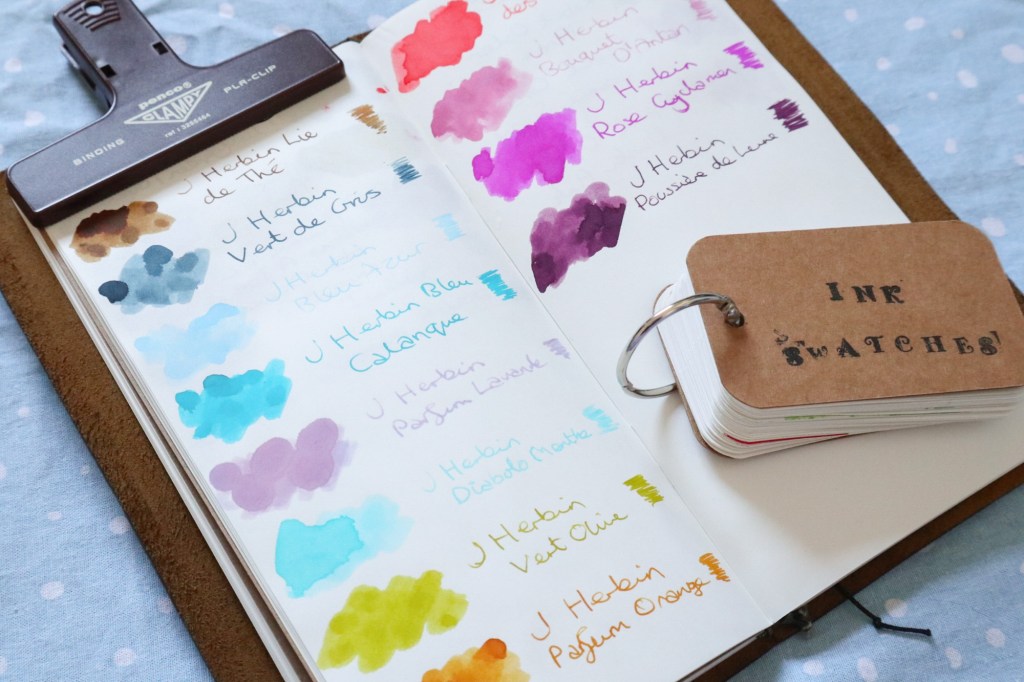 penco®
CLAMPY
BINDING
PLA-CLIP
J Herbin Lie
de Thé
J Herbin
Vert de Gris
J Herbin
Bleu Azur
J Herbin Bleu
Calanque
J Herbin
Parfum Lavande
J Herbin
Diabolo Menthe
J Herbin
Vert Olive
J Herbin
Parfum Orange
des
J Herbin
Bouquet d'Antan
J Herbin
Rose Cyclamen
J Herbin
Poussière de Lune
INK
SWATCHES